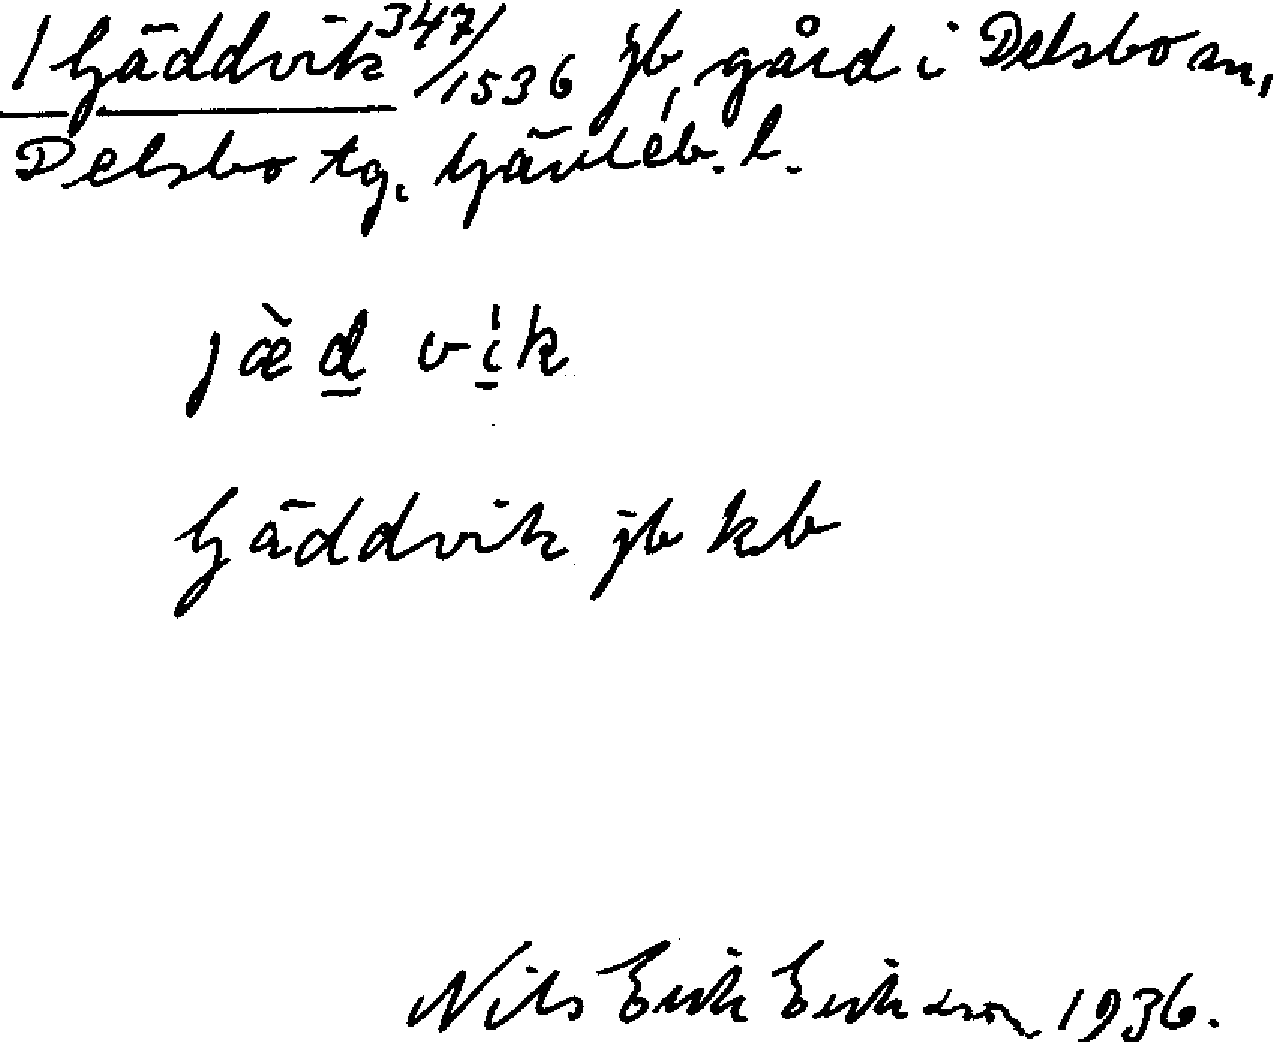 1 Gäddvik 347/1536 jb, gård i Delsbo sn,
Delsbo tg. Gävleb. l.
jæ̀d vi̍k
Gäddvik jb kb
Nils Erik Eriksson 1936.